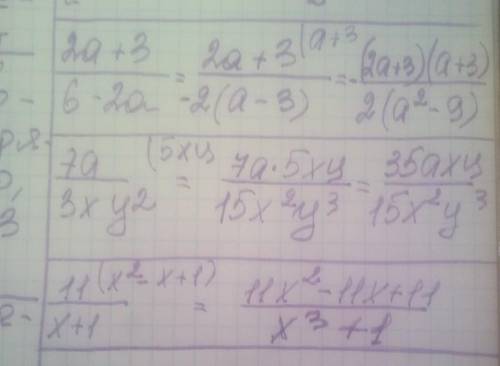 (2a+3)/(6-2a) = (2a+3 (a+3)/(-2(a-3)) = -((2a+3)(a+3))/(2(a²-9))
7a/(3xy²) (5xy = (7a·5xy)/(15x²y³) = (35axy)/(15x²y³)
11 (x²-x+1)/(x+1) = (11x²-11x+11)/(x³+1)